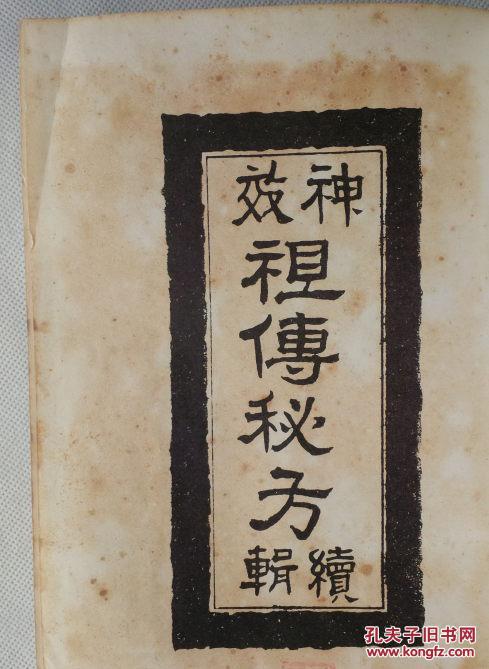 神效
祖傳秘方
續輯
孔夫子旧书网
www.kongfz.com